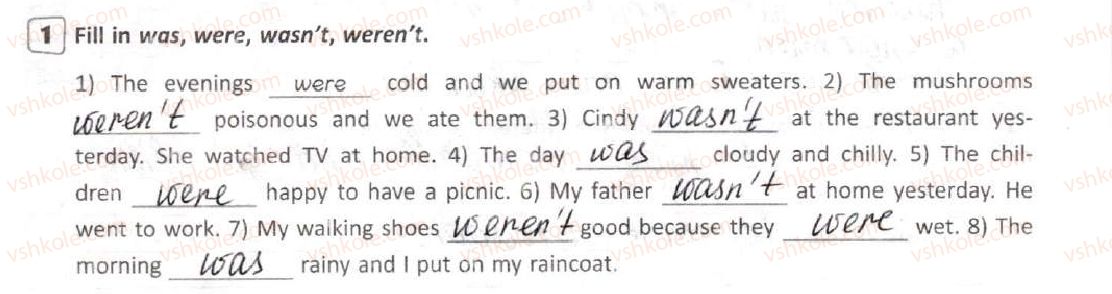 1 Fill in was, were, wasn't, weren't.
1) The evenings were cold and we put on warm sweaters. 2) The mushrooms
weren't poisonous and we ate them. 3) Cindy wasn't at the restaurant yes-
terday. She watched TV at home. 4) The day was cloudy and chilly. 5) The chil-
dren were happy to have a picnic. 6) My father wasn't at home yesterday. He
went to work. 7) My walking shoes weren't good because they were wet. 8) The
morning was rainy and I put on my raincoat.